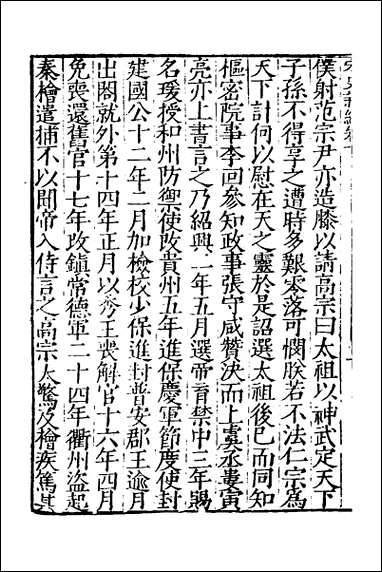 僕射范宗尹亦造膝以請高宗曰太祖以神武定天下
子孫不得享之遭時多艱零落可憫朕若不法仁宗為
天下計何以慰在天之靈於是詔選太祖後已而同知
樞密院事李回參知政事張守咸贊決而上虞丞婁寅
亮亦上書言之乃紹興二年五月選帝育禁中三年賜
名瑗授和州防禦使改貴州五年進保慶軍節度使封
建國公十二年二月加檢校少保進封普安郡王逾月
出閤就外第十四年正月以秀王喪解官十六年四月
免喪還舊官十七年改鎮常德軍二十四年衢州盜起
秦檜遣捕不以聞帝入侍言之高宗大驚及檜疾篤其